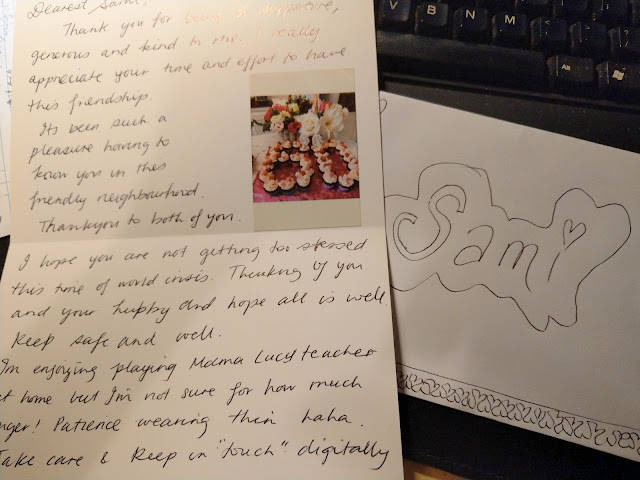 Dearest Sami,
Thank you for being so supportive,
generous and kind to me. I really
appreciate your time and effort to have
this friendship.
Its been such a
pleasure having to
know you in this
friendly neighbourhood.
Thankyou to both of you.
I hope you are not getting too stessed
this time of world crisis. Thinking of you
and your hubby and hope all is well.
Keep safe and well.
I'm enjoying playing Mama Lucy teacher
at home but I'm not sure for how much
nger! Patience wearing thin haha.
Take care & Keep in "touch" digitally
60
Sami
V B N M
Alt